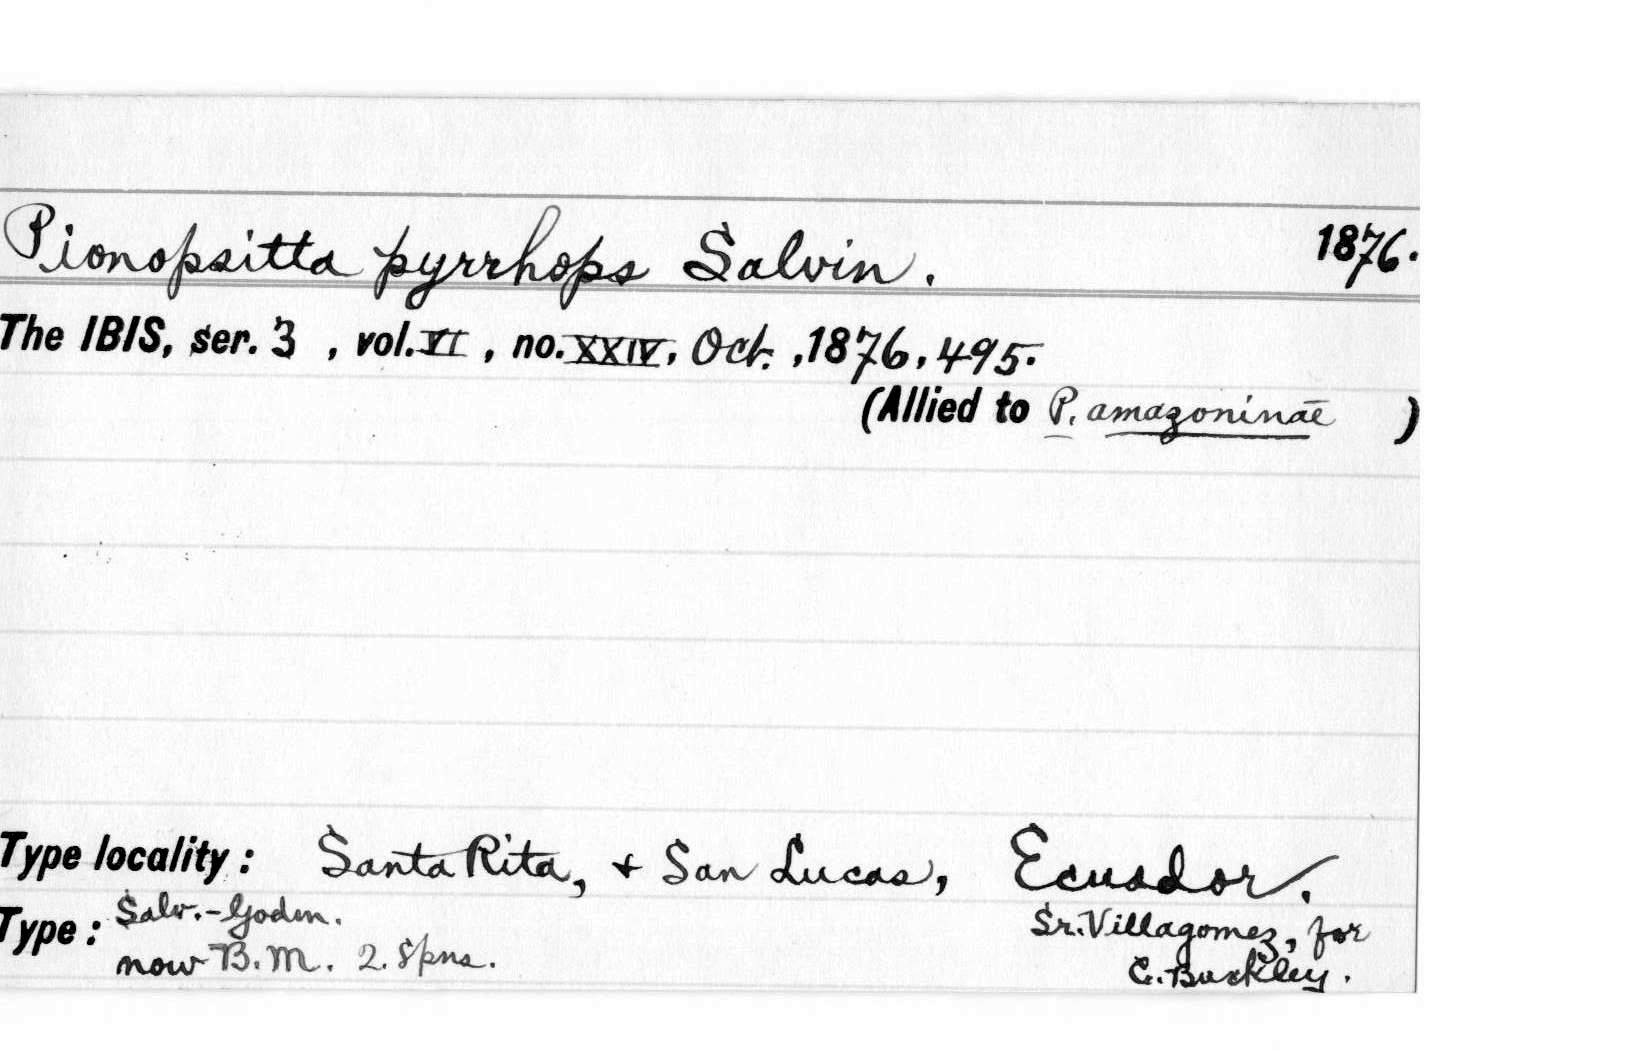 Pionopsitta pyrrhops Salvin. 1876.
The IBIS, ser. 3 , vol. VI , no. XXIV, Oct. ,1876, 495.
(Allied to P. amazoninae )
Type locality : Santa Rita, + San Lucas, Ecuador.
Type : Salv.-Godm. Sr. Villagomez, for
now B.M. 2. Spns. C. Buckley.